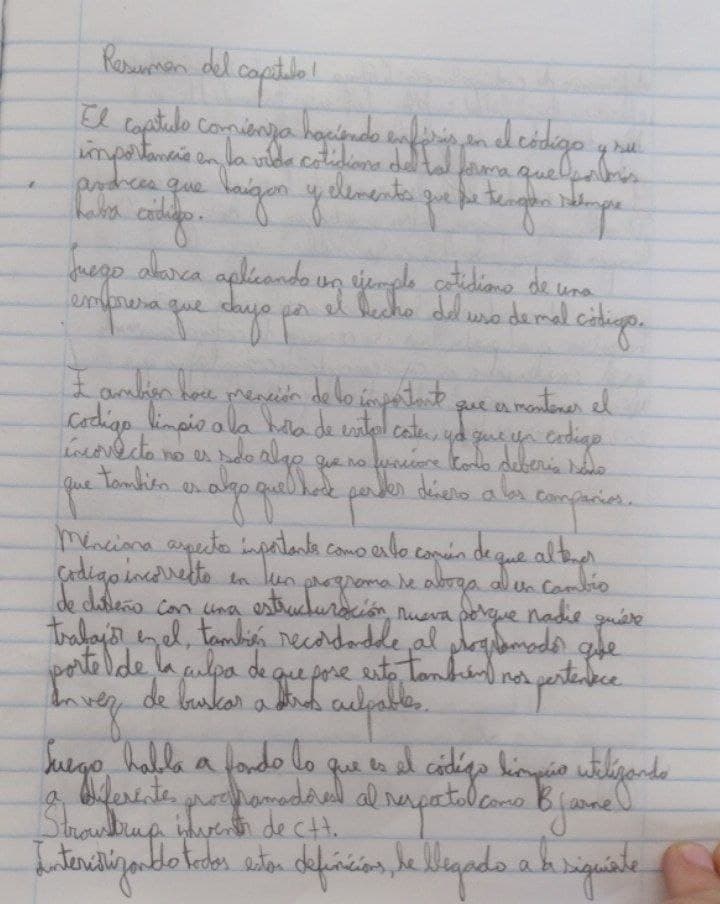 Resumen del capitulo 1
El capitulo comienza haciendo enfasis en el código y su
importancia en la vida cotidiana de tal forma que por más
avances que haigan y elementos que se tengan siempre
haba código.
Luego abarca aplicando un ejemplo cotidiano de una
empresa que cayo por el hecho del uso de mal código.
Tambien hace mención de lo importante que es mantener el
codigo limpio a la hora de , ya que un codigo
incorrecto no es solo algo que no funcione como deberia sino
que tambien es algo que hace perder dinero a las companias.
Menciona aspecto inportante como es lo común de que al tener
codigo incorrecto en un programa se aboga a un cambio
de diseño con una estructuración nueva porque nadie quiere
trabajar en el, también recordadole al programador que
parte de la culpa de que pase esto, tambien nos pertenece
en vez de buscar a otros culpables.
Luego habla a fondo lo que es el código limpio utilizando
a diferentes programadores al respecto como Bjarne
Stroustrup de C++.
todas estas definicions, he llegado a la siguiente